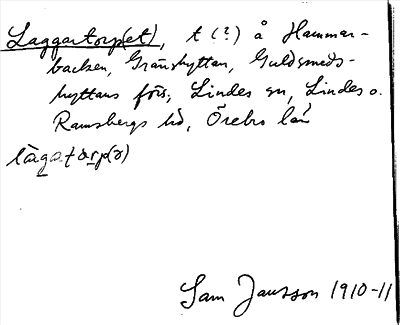 Laggartorp(et), t (?) å Hammar-
backen, Gränshyttan, Guldsmeds-
hyttans förs., Lindes sn, Lindes o.
Ramsbergs hd, Örebro län
làgatàrp(ə)
Sam Jansson 1910-11